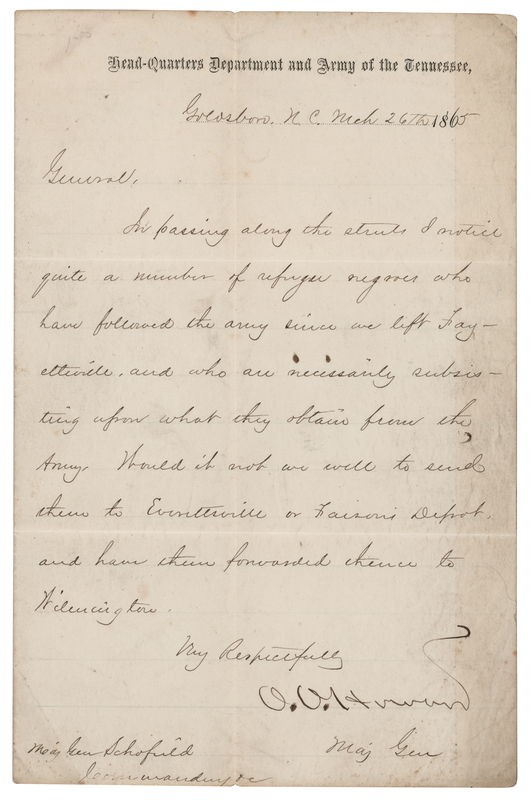 Head-Quarters Department and Army of the Tennessee,
Goldsboro, N. C. Mch 26th 1865
General,
In passing along the streets I notice
quite a number of refugee negroes who
have followed the army since we left Fay-
etteville, and who are necessarily subsis-
ting upon what they obtain from the
Army. Would it not be well to send
them to Everettsville or Faison's Depot,
and have them forwarded thence to
Wilmington.
Very Respectfully
O. O. Howard
Maj Gen
Maj Gen Schofield
Commanding &c